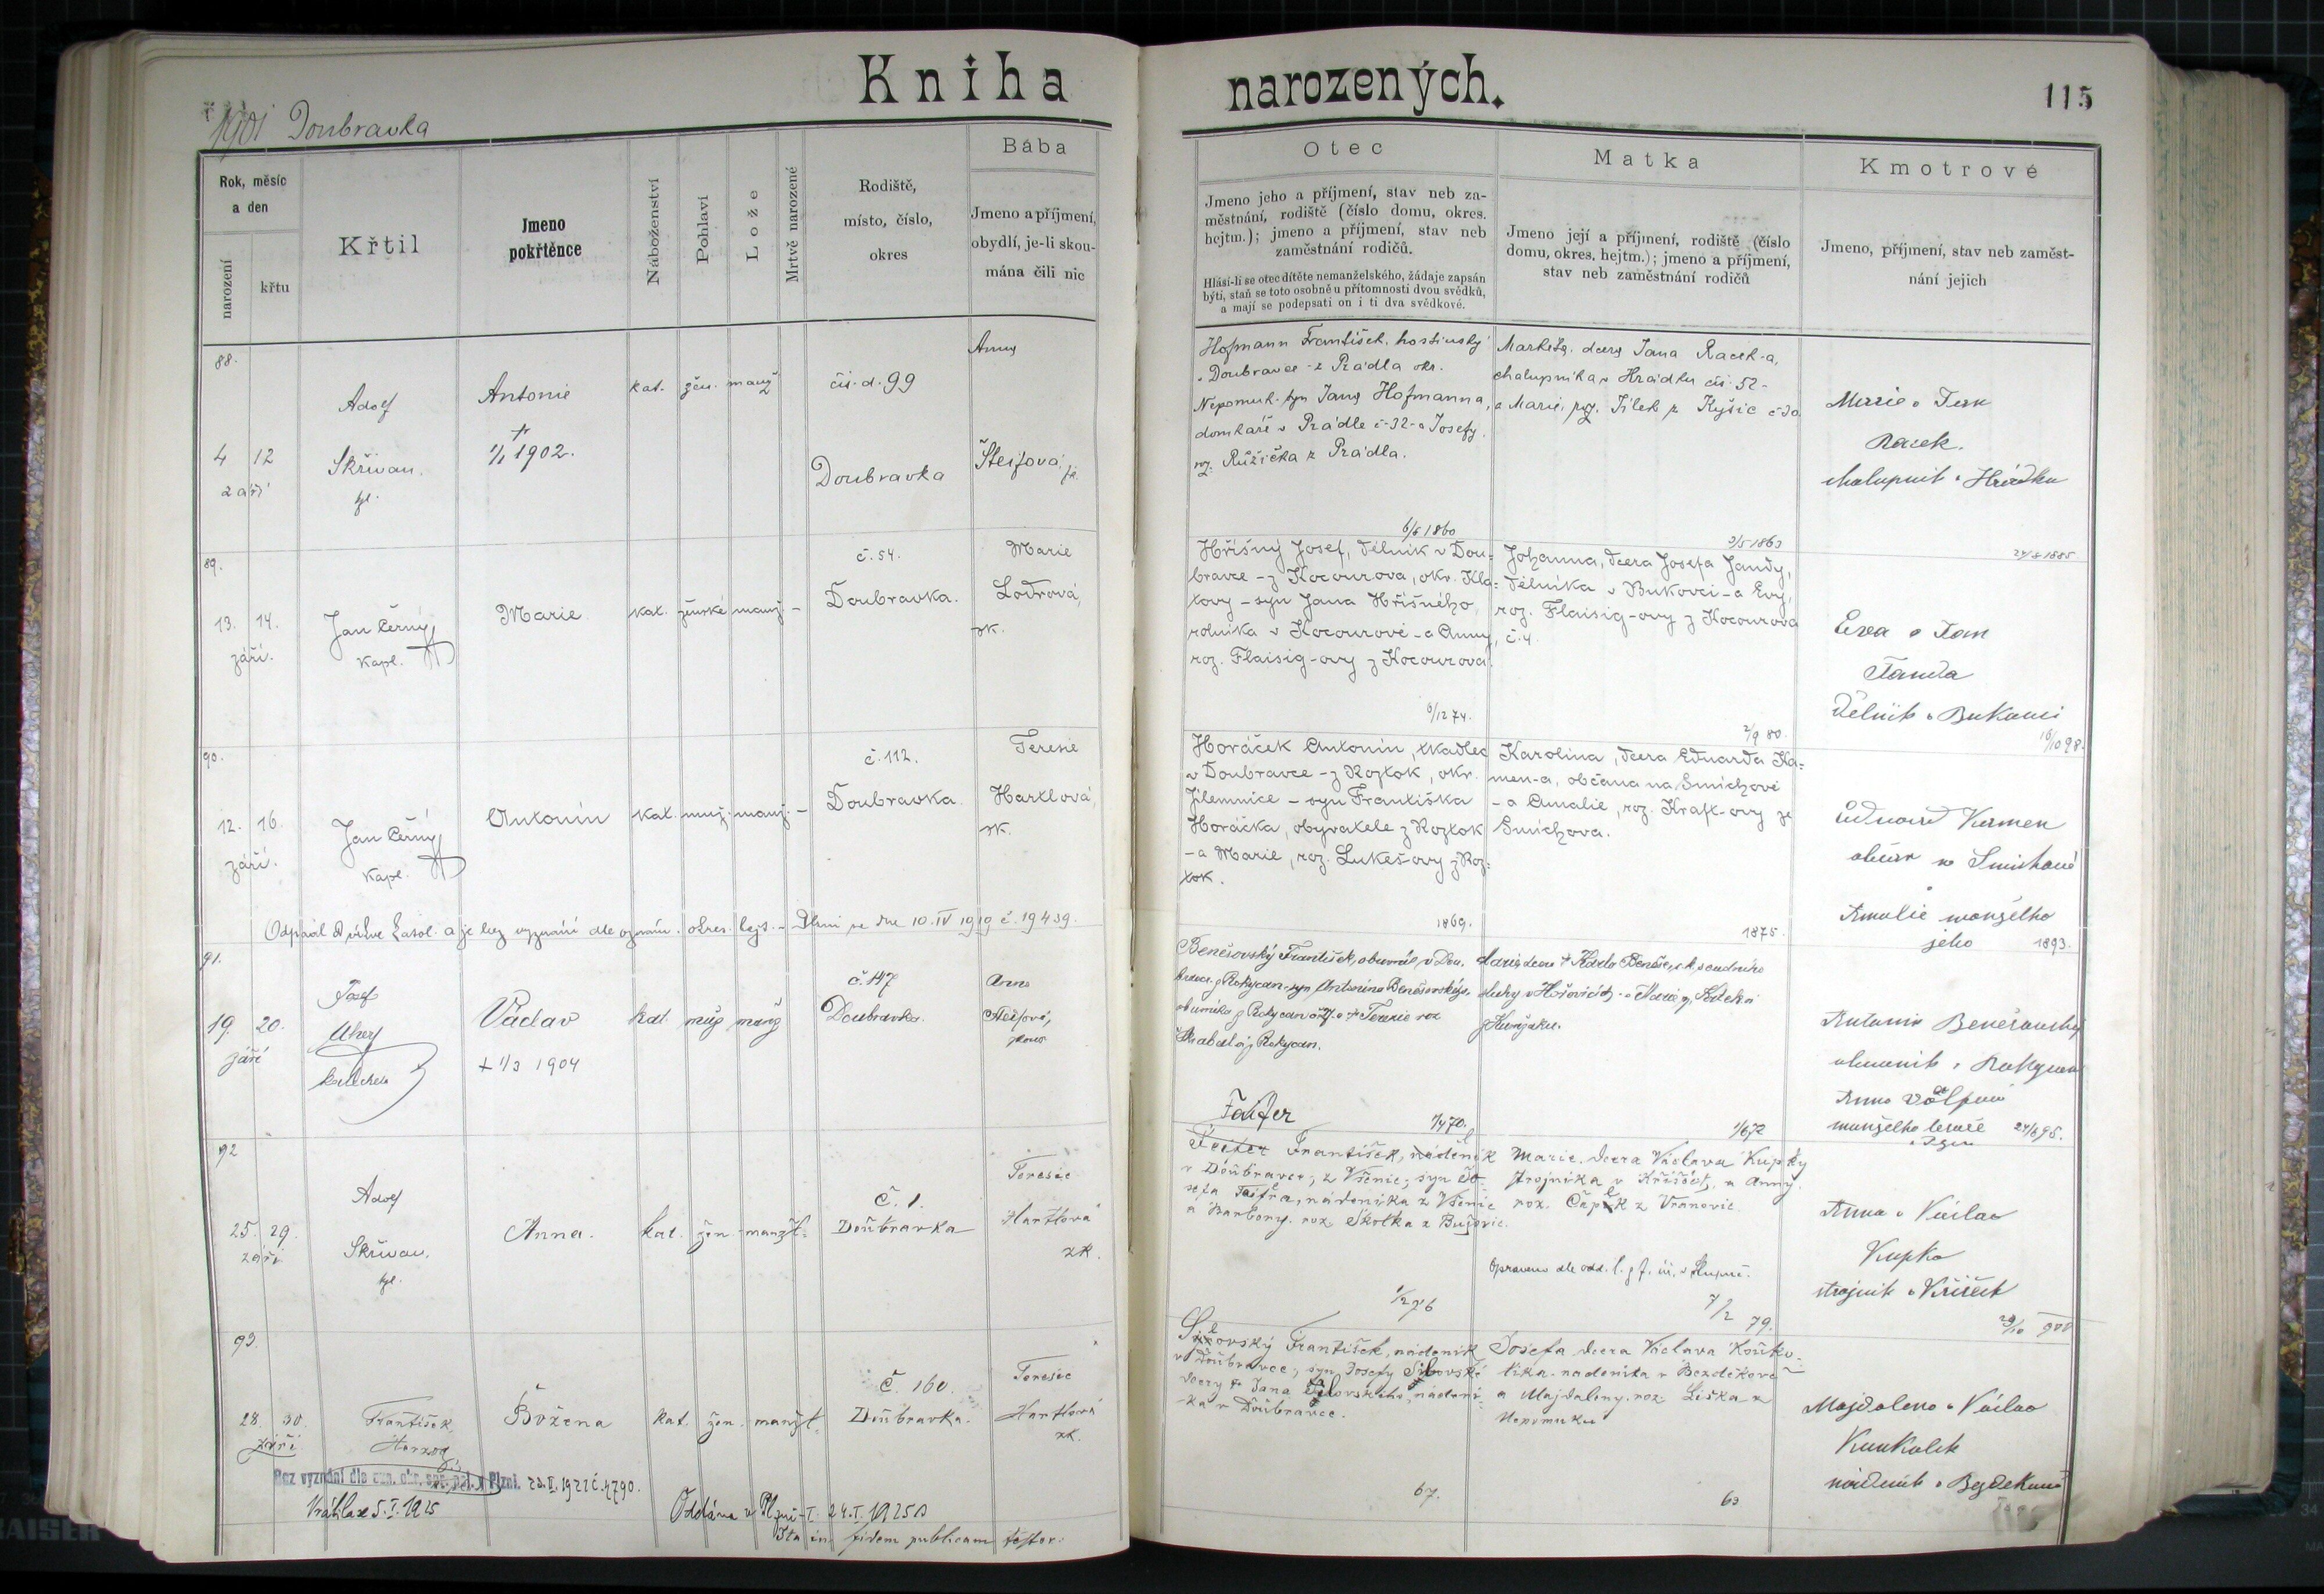 Kniha narozených.
115
1901 Doubravka
Rok, měsíc a den
narození
křtu
Křtil
Jmeno pokřtěnce
Náboženství
Pohlaví
Lože
Mrtvě narozené
Rodiště,
místo, číslo,
okres
Bába
Jmeno a příjmení,
obydlí, je-li skou-
mána čili nic
Otec
Jmeno jeho a příjmení, stav neb za-
městnání, rodiště (číslo domu, okres.
hejtm.); jmeno a příjmení, stav neb
zaměstnání rodičů.
Hlásí-li se otec dítěte nemanželského, žádaje zapsán
býti, staň se toto osobně u přítomnosti dvou svědků,
a mají se podepsati on i ti dva svědkové.
Matka
Jmeno její a příjmení, rodiště (číslo
domu, okres. hejtm.); jmeno a příjmení,
stav neb zaměstnání rodičů
Kmotrové
Jmeno, příjmení, stav neb zaměst-
nání jejich
88.
4 12
září
Adolf
Skřivan
Antonie
† 1/1 1902.
kat. žen. manž
čís. d. 99
Doubravka
Anna
Šteifová
Hofmann František, hostinský
v Doubravce - z Prádla okr.
Nepomuk. syn Jana Hofmanna,
domkaře v Prádle č-32- a Josefy
roz. Růžička z Prádla.
6/6 1860
Markéta, dcera Jana Racek-a,
chalupníka v Hrádku čís. 52-
a Marie, roz. Jílek z Kyšic č 30
3/5 1863
Marie a Jan
Racek.
chalupník v Hrádku
24/8 1885
89.
13. 14.
září.
Jan Černý
kapl.
Marie
kat. ženské manž. -
č. 54.
Doubravka.
Marie
Lodrová,
zk.
Hříšný Josef, dělník v Dou=
bravce - z Kocourova, okr. Kla=
tovy - syn Jana Hříšného,
rolníka v Kocourově - a Anny,
roz. Flaisig-ovy z Kocourova
6/12 74.
Johanna, dcera Josefa Jandy,
dělníka v Bukovci - a Evy,
roz. Flaisig-ovy z Kocourova
č. 4.
2/9 80.
Eva a Jan
Janda
dělník v Bukovci
16/10 98.
90.
12. 16.
září.
Jan Černý
kapl.
Antonín
kat. muž. manž. -
č. 112.
Doubravka.
Teresie
Hartlová,
zk.
Horáček Antonín, tkadlec
v Doubravce - z Roztok, okr.
Jilemnice - syn Františka
Horáčka, obyvatele z Roztok
- a Marie, roz. Lukeš-ovy z Roz=
tok.
1869.
Karolina, dcera Eduarda Ka=
men-a, občana na Smíchově
- a Amalie, roz. Kraft-ovy ze
Smíchova.
1875.
Eduard Kamen
občan na Smíchově
Amalie manželka
jeho 1893.
Odpadl od církve a je bez vyznání dle oznám. okres. hejt. - Plzni ze dne 10. IV 1919 č. 19439.
91.
19. 20.
září
Josef
Uher
katecheta
Václav
+ 1/3 1904
kat. muž manž
č. 147
Doubravka.
Anna
Šteifová,
Benešovský František, obuvník v Dou-
bravce z Rokycan. syn Antonína Benešovského,
obuvníka z Rokycan a Terezie roz
z Rokycan.
1/4 70.
Marie, dcera † Karla Beneše,
sluhy v Hořovicích - a Marie
1/6 72
Antonín Benešovský
obuvník v Rokycan
Anna
manželka tesaře 24/6 95.
92
25. 29.
září
Adolf
Skřivan,
Anna.
kat. žen. manžt.
Č. 1.
Doubravka
Teresie
Hartlová
zk.
Faifer
František,
v Doubravce; z Všenic; syn Jo-
sefa Faifra, nádeníka z Všenic
a Barbory, roz. Skotka z Bušovic.
1/2 76
Marie, dcera Václava Kupky
strojníka v Křiších, a Anny
roz. Čapek z Vranovic
Opraveno dle odd. l.
7/2 79.
Anna a Václav
Kupka
strojník v
29/10 900
93.
28. 30.
září
František
Herzog
Božena
kat. žen. manžt.
Č. 160.
Doubravka.
Teresie
Hartlová
zk.
František, nádeník
v Doubravce; syn Josefy
dcery † Jana nádení-
ka v Doubravce.
67.
Josefa dcera Václava Kouko-
líka, nádeníka v Bezděkově
a Majdaleny, roz. Liška z
Nepomuku
69
Majdalena a Václav
Kuukolek
nádeník v
Bez vyznání dle ozn. okr. spr. pol. v Plzni. 22.II.1922 č. 4790.
Vrátila se 5.I.1925
Oddána v Plzni-I. 24.I.1925
Ita in fidem publicam testor.